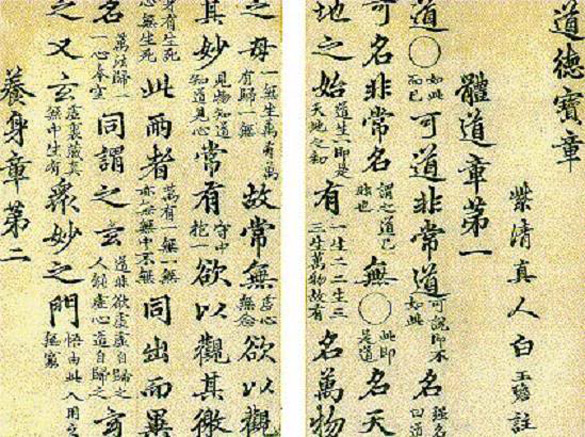 道德寶章
紫清真人白玉蟾註
體道章第一
道○如此而已可道非常道可說即不如此名強名曰道
可名非常名謂之道已非也無○此即是道名天
地之始道生一即是天地之初有一生二二生三三生萬物故有名萬物
之母一無生萬有萬有歸一無故常無虛心無念欲以觀
其妙見物知道知道見心常有守中抱一欲以觀其徼
身有生死心無生死此兩者萬有一無一無亦無無中不無同出而異
名萬法歸一一心本空同謂之玄道非欲虛虛自歸之人能虛心道自歸之玄
之又玄虛裏藏真無中生有衆妙之門悟由此入用之窮
養身章第二